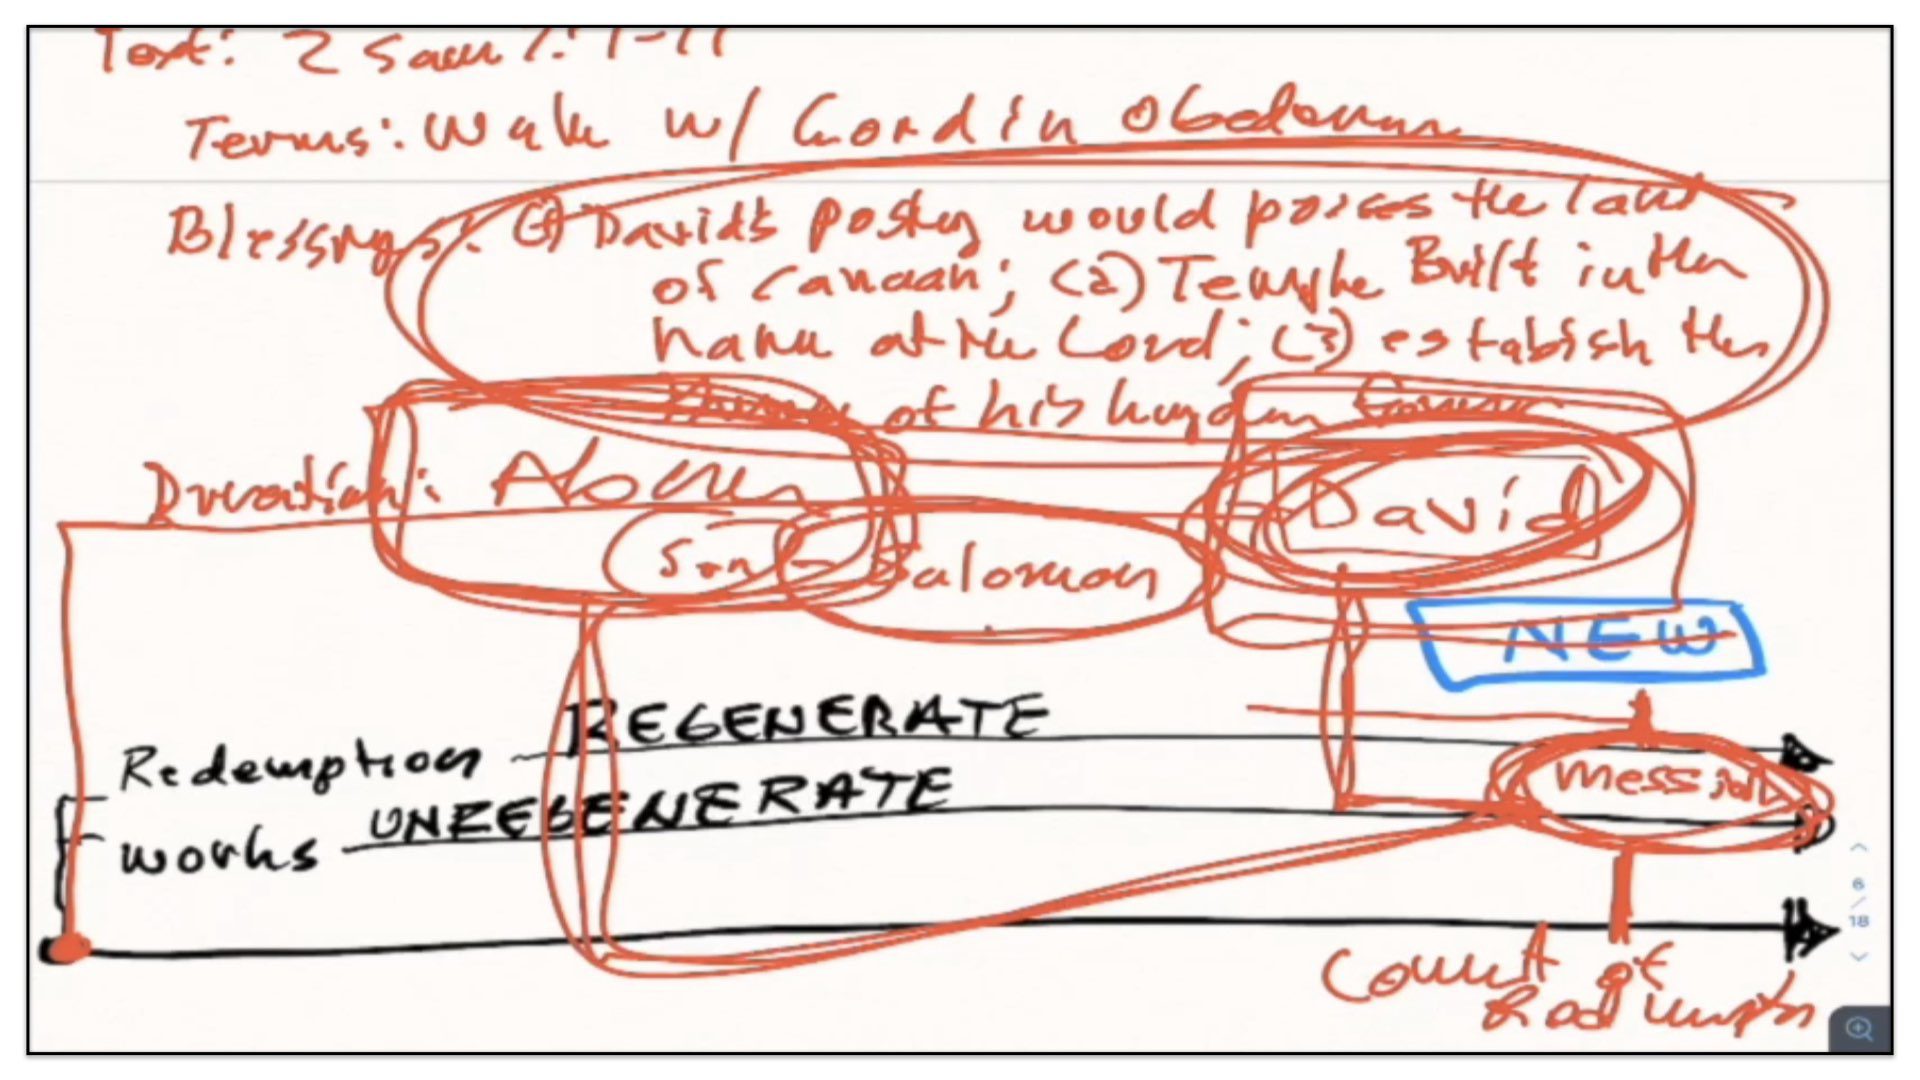 Text: 2 Sam 7:1-17
Terms: Walk w/ Lord in
Blessings: (1) David's would the land
of Canaan; (2) Temple Built in the
name of the Lord; (3) establish the
of his kingdom
Duration: David
Son - Solomon
NEW
REGENERATE
Redemption
Messiah
UNREGENERATE
works
6
/
18
of